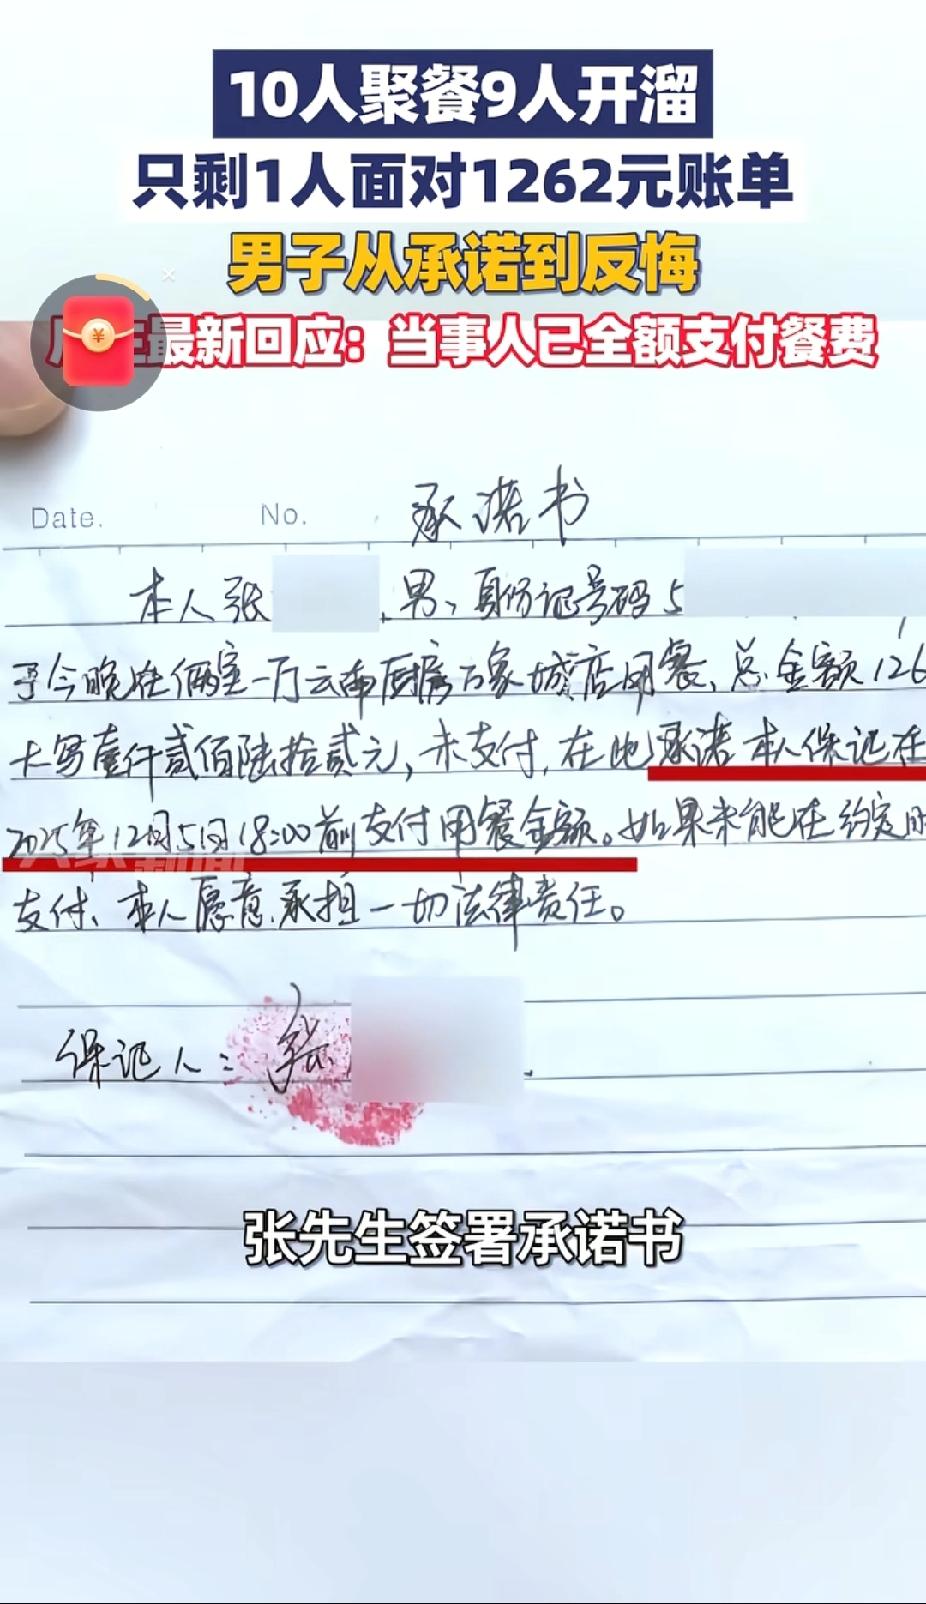 10人聚餐9人开溜
只剩1人面对1262元账单
男子从承诺到反悔
最新回应：当事人已全额支付餐费
¥
Date.
No.
承诺书
本人张 ，男，身份证号码5
于今晚在俩室一厅云南厨房万象城店用餐，总金额126
大写壹仟贰佰陆拾贰元，未支付，在此承诺本人保证在
2025年12月5日18:00前支付用餐金额。如果未能在约定时
支付，本人愿意承担一切法律责任。
保证人：张
张先生签署承诺书